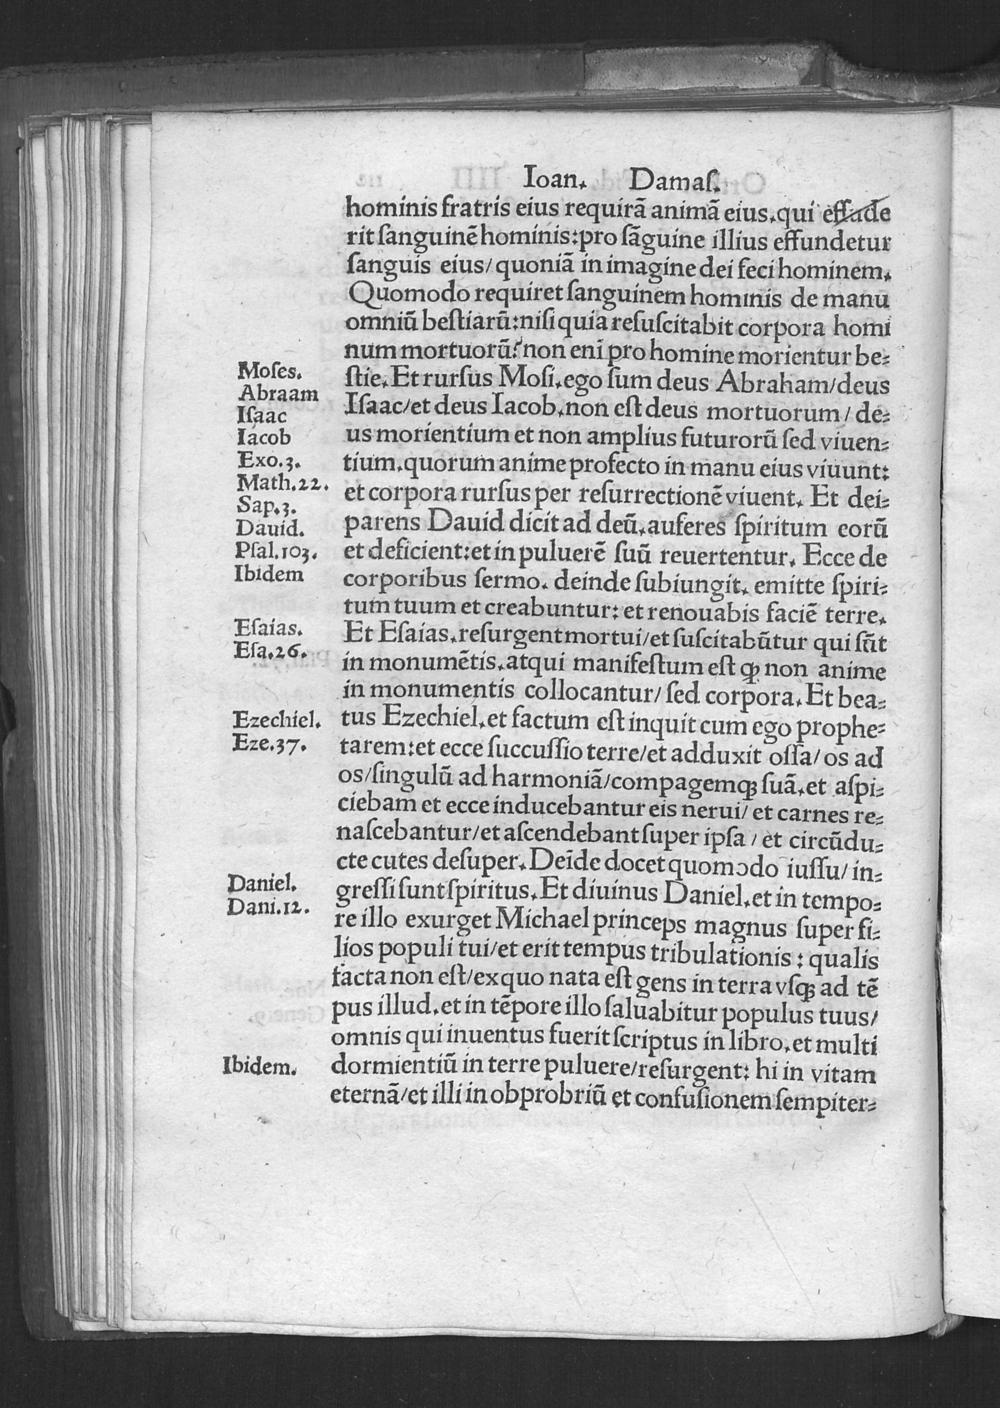 Ioan. Damaſ.
hominis fratris eius requirã animã eius, qui effũde
rit ſanguinẽ hominis: pro ſãguine illius effundetur
ſanguis eius/ quoniã in imagine dei feci hominem.
Quomodo requiret ſanguinem hominis de manu
omniũ beſtiarũ: niſi quia reſuſcitabit corpora homi
num mortuorũ? non eni pro homine morientur be⸗
Moſes.
ſtie. Et rurſus Moſi, ego ſum deus Abraham/ deus
Abraam
Iſaac/ et deus Iacob, non eſt deus mortuorum/ de⸗
Iſaac
Iacob
us morientium et non amplius futurorũ ſed viuen⸗
Exo.3.
tium, quorum anime profecto in manu eius viuunt:
Math.22.
et corpora rurſus per reſurrectionẽ viuent. Et dei⸗
Sap.3.
Dauid.
parens Dauid dicit ad deũ, auferes ſpiritum eorũ
Pſal.103.
et deficient: et in puluerẽ ſuũ reuertentur. Ecce de
Ibidem
corporibus ſermo. deinde ſubiungit, emitte ſpiri⸗
tum tuum et creabuntur: et renouabis faciẽ terre.
Eſaias.
Et Eſaias, reſurgent mortui/ et ſuſcitabũtur qui ſũt
Eſa.26.
in monumẽtis, atqui manifeſtum eſt ꝙ non anime
in monumentis collocantur/ ſed corpora. Et bea⸗
Ezechiel.
tus Ezechiel, et factum eſt inquit cum ego prophe⸗
Eze.37.
tarem: et ecce ſuccuſſio terre/ et adduxit oſſa/ os ad
os/ ſingulũ ad harmoniã/ compagemqꝫ ſuã, et aſpi⸗
ciebam et ecce inducebantur eis nerui/ et carnes re⸗
naſcebantur/ et aſcendebant ſuper ipſa/ et circũdu⸗
cte cutes deſuper. Deĩde docet quomodo iuſſu/ in⸗
Daniel.
greſſi ſunt ſpiritus. Et diuinus Daniel, et in tempo⸗
Dani.12.
re illo exurget Michael princeps magnus ſuper fi⸗
lios populi tui/ et erit tempus tribulationis: qualis
facta non eſt/ ex quo nata eſt gens in terra vſqꝫ ad tẽ
pus illud, et in tẽpore illo ſaluabitur populus tuus/
omnis qui inuentus fuerit ſcriptus in libro, et multi
Ibidem.
dormientiũ in terre puluere/ reſurgent: hi in vitam
eternã/ et illi in obprobriũ et confuſionem ſempiter⸗